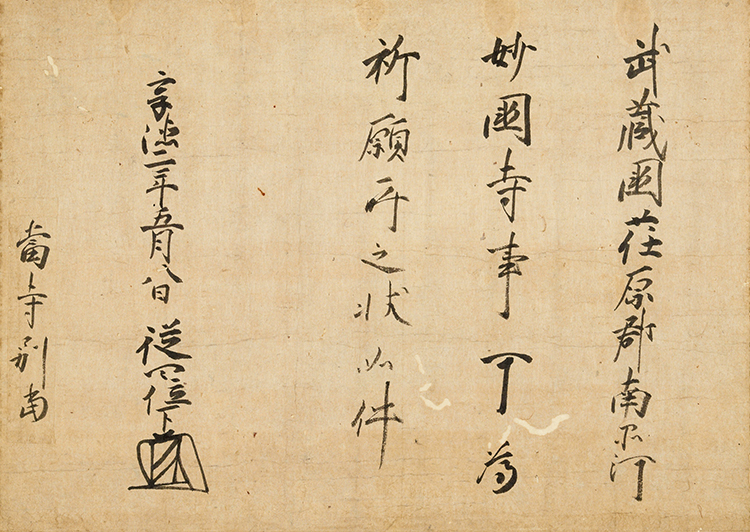 武藏國荏原郡南品河
妙國寺事可為
祈願所之状如件
享徳二年五月八日 従四位下
當寺別當